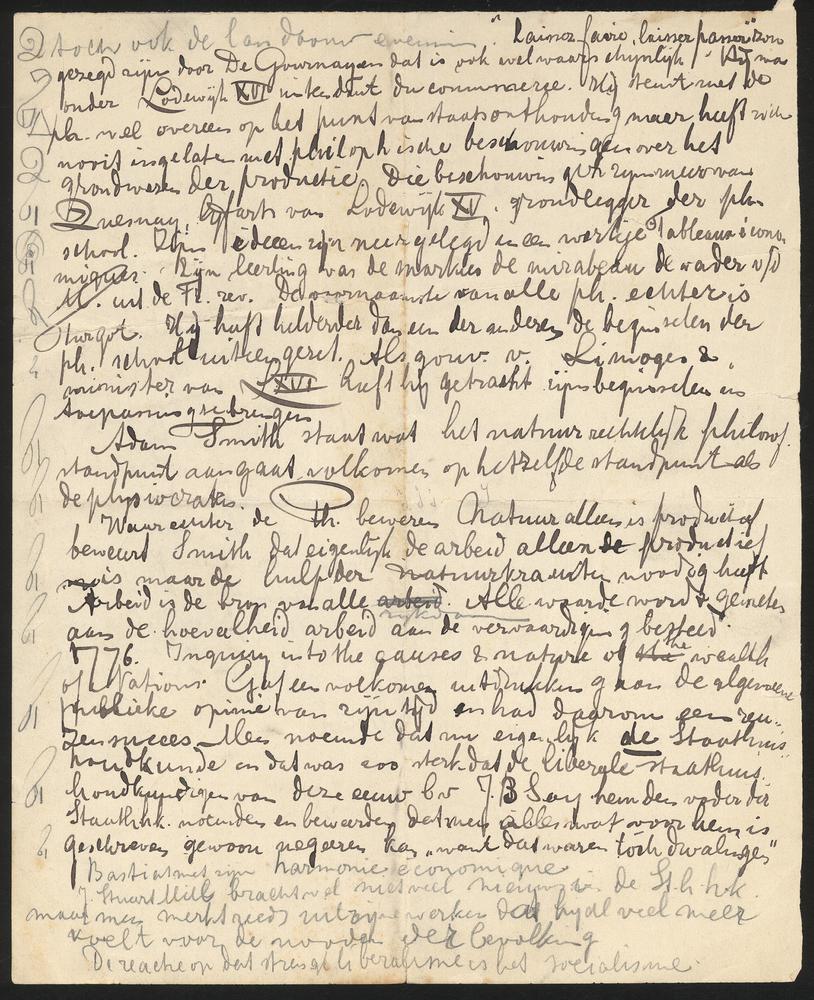 toch ook de landbouw "Laisser faire, laisser passer" zou
gezegd zijn door De Gournay en dat is ook wel waarschijnlijk. Hij was
onder Lodewijk XVI intendant du commerce. Hij stemt met de
ph. wel overeen op het punt van staatsonthouding maar heeft zich
nooit ingelaten met philophische beschouwingen over het
grondwezen der productie. Die beschouwingen zijn meer van
Quesnay, lijfarts van Lodewijk XV, grondlegger der ph.
school. Zijn ideeen zijn neergelegd in een werkje "Tableau écono-
mique". Zijn leerling was de markies de mirabeau de vader v/d
M. uit de Fr. rev. De voornaamste van alle ph. echter is
Turgot. Hij heeft helderder dan een der anderen de beginselen der
ph. school uiteengezet. Als gouv. v. Limoges &
minister van LXVI heeft hij getracht zijn beginselen in
toepassing te brengen
Adam Smith staat wat het natuurrechtelijk philosof.
standpunt aangaat volkomen op hetzelfde standpunt als
de physiocraten.
Waar echter de Ph. beweren Natuur alleen is productief
beweert Smith dat eigenlijk de arbeid alleen de productief
is maar de hulp der natuurkrachten noodig heeft
Arbeid is de bron van alle arbeid rijkdom. Alle waarde wordt gemeten
aan de hoeveelheid arbeid aan de vervaardiging besteed.
1776. Inquiry into the causes & nature of the the wealth
of Nations. Gaf een volkomen uitdrukking aan de algemeene
publieke opinie van zijn tijd en had daarom een reu-
zensucces. Men noemde dat nu eigenlijk de Staathuis-
houdkunde en dat was zoo sterk dat de liberale staathuis-
houdkundigen van deze eeuw bv J.B Say hem den vader der
Staathhk. noemden en beweerden dat men alles wat voor hem is
geschreven gewoon negeeren kan, "want dat waren toch dwalingen"
Bastiat met zijn harmonie économique
J. Stuart Mill bracht wel niet veel nieuws in de St.h.h.k.
maar men merkt reeds uit zijne werken dat hij al veel meer
voelt voor de nooden der bevolking
De reactie op dat strenge liberalisme is het socialisme.